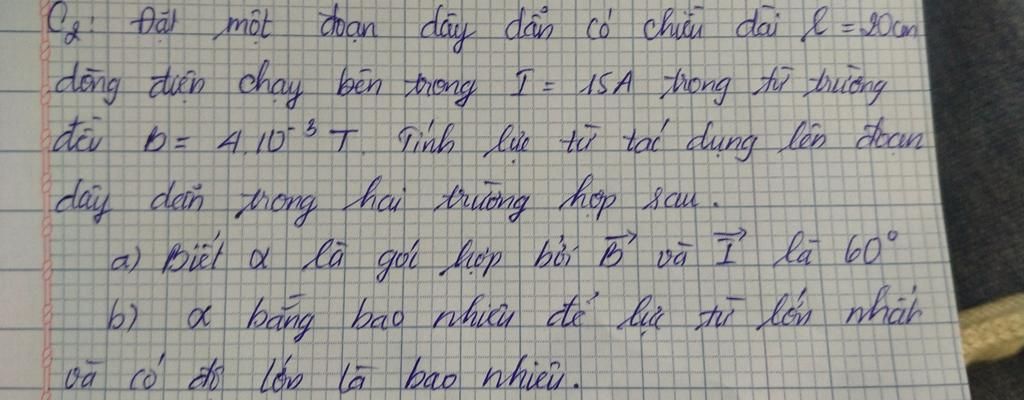 C₂: Đặt một đoạn dây dẫn có chiều dài l = 20cm
dòng điện chạy bên trong I = 15A trong từ trường
đều B = 4.10⁻³ T. Tính lực từ tác dụng lên đoạn
dây dẫn trong hai trường hợp sau.
a) Biết α là góc hợp bởi B⃗ và I⃗ là 60°
b) α bằng bao nhiêu để lực từ lớn nhất
và có độ lớn là bao nhiêu.